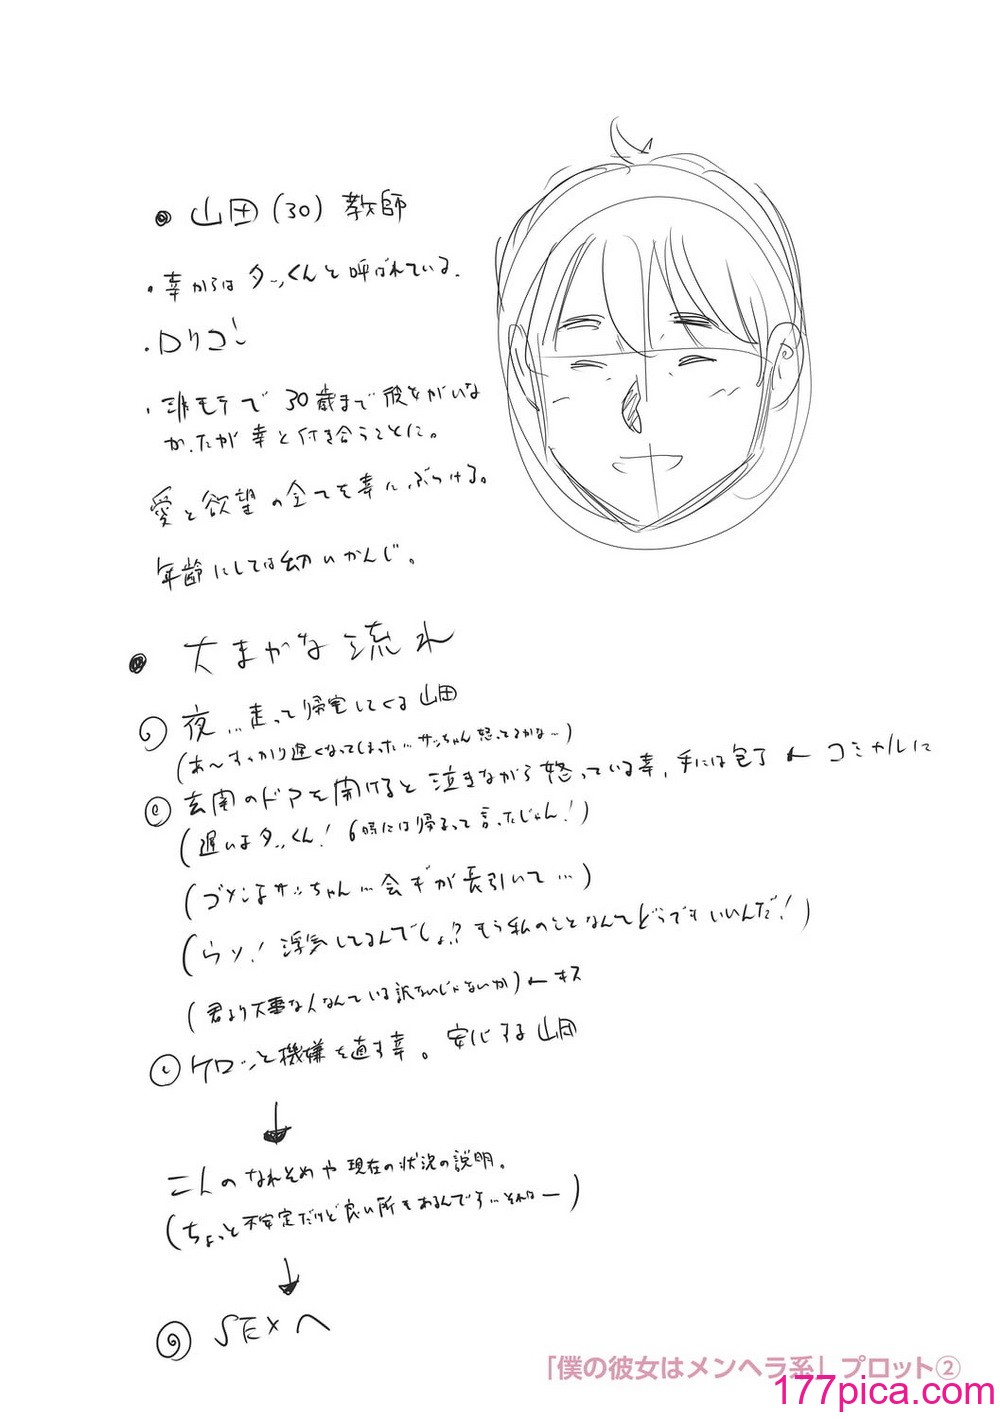 山田(30)教師
・幸からはタッくんと呼ばれている。
・ロリコン
・非モテで30歳まで彼女がいな
かったが幸と付き合うことに。
愛と欲望の全てを幸にぶつける。
年齢にしては幼いかんじ。
大まかな流れ
夜…走って帰宅してくる山田
(あ〜すっかり遅くなってしまった…サッちゃん怒ってるかな…)
玄関のドアを開けると泣きながら怒っている幸、手には包丁 ← コミカルに
(遅いよタッくん!6時には帰るって言ったじゃん!)
(ゴメンよサッちゃん…会ギが長引いて…)
(ウソ!浮気してるんでしょ!?もう私のことなんてどうでもいいんだ!)
(君より大事な人なんている訳ないじゃないか)←キス
ケロッと機嫌を直す幸。安心する山田
↓
二人のなれそめや現在の状況の説明。
(ちょっと不安定だけど良い所もあるんです…それは—)
↓
SEXへ
「僕の彼女はメンヘラ系」プロット②
177pica.com